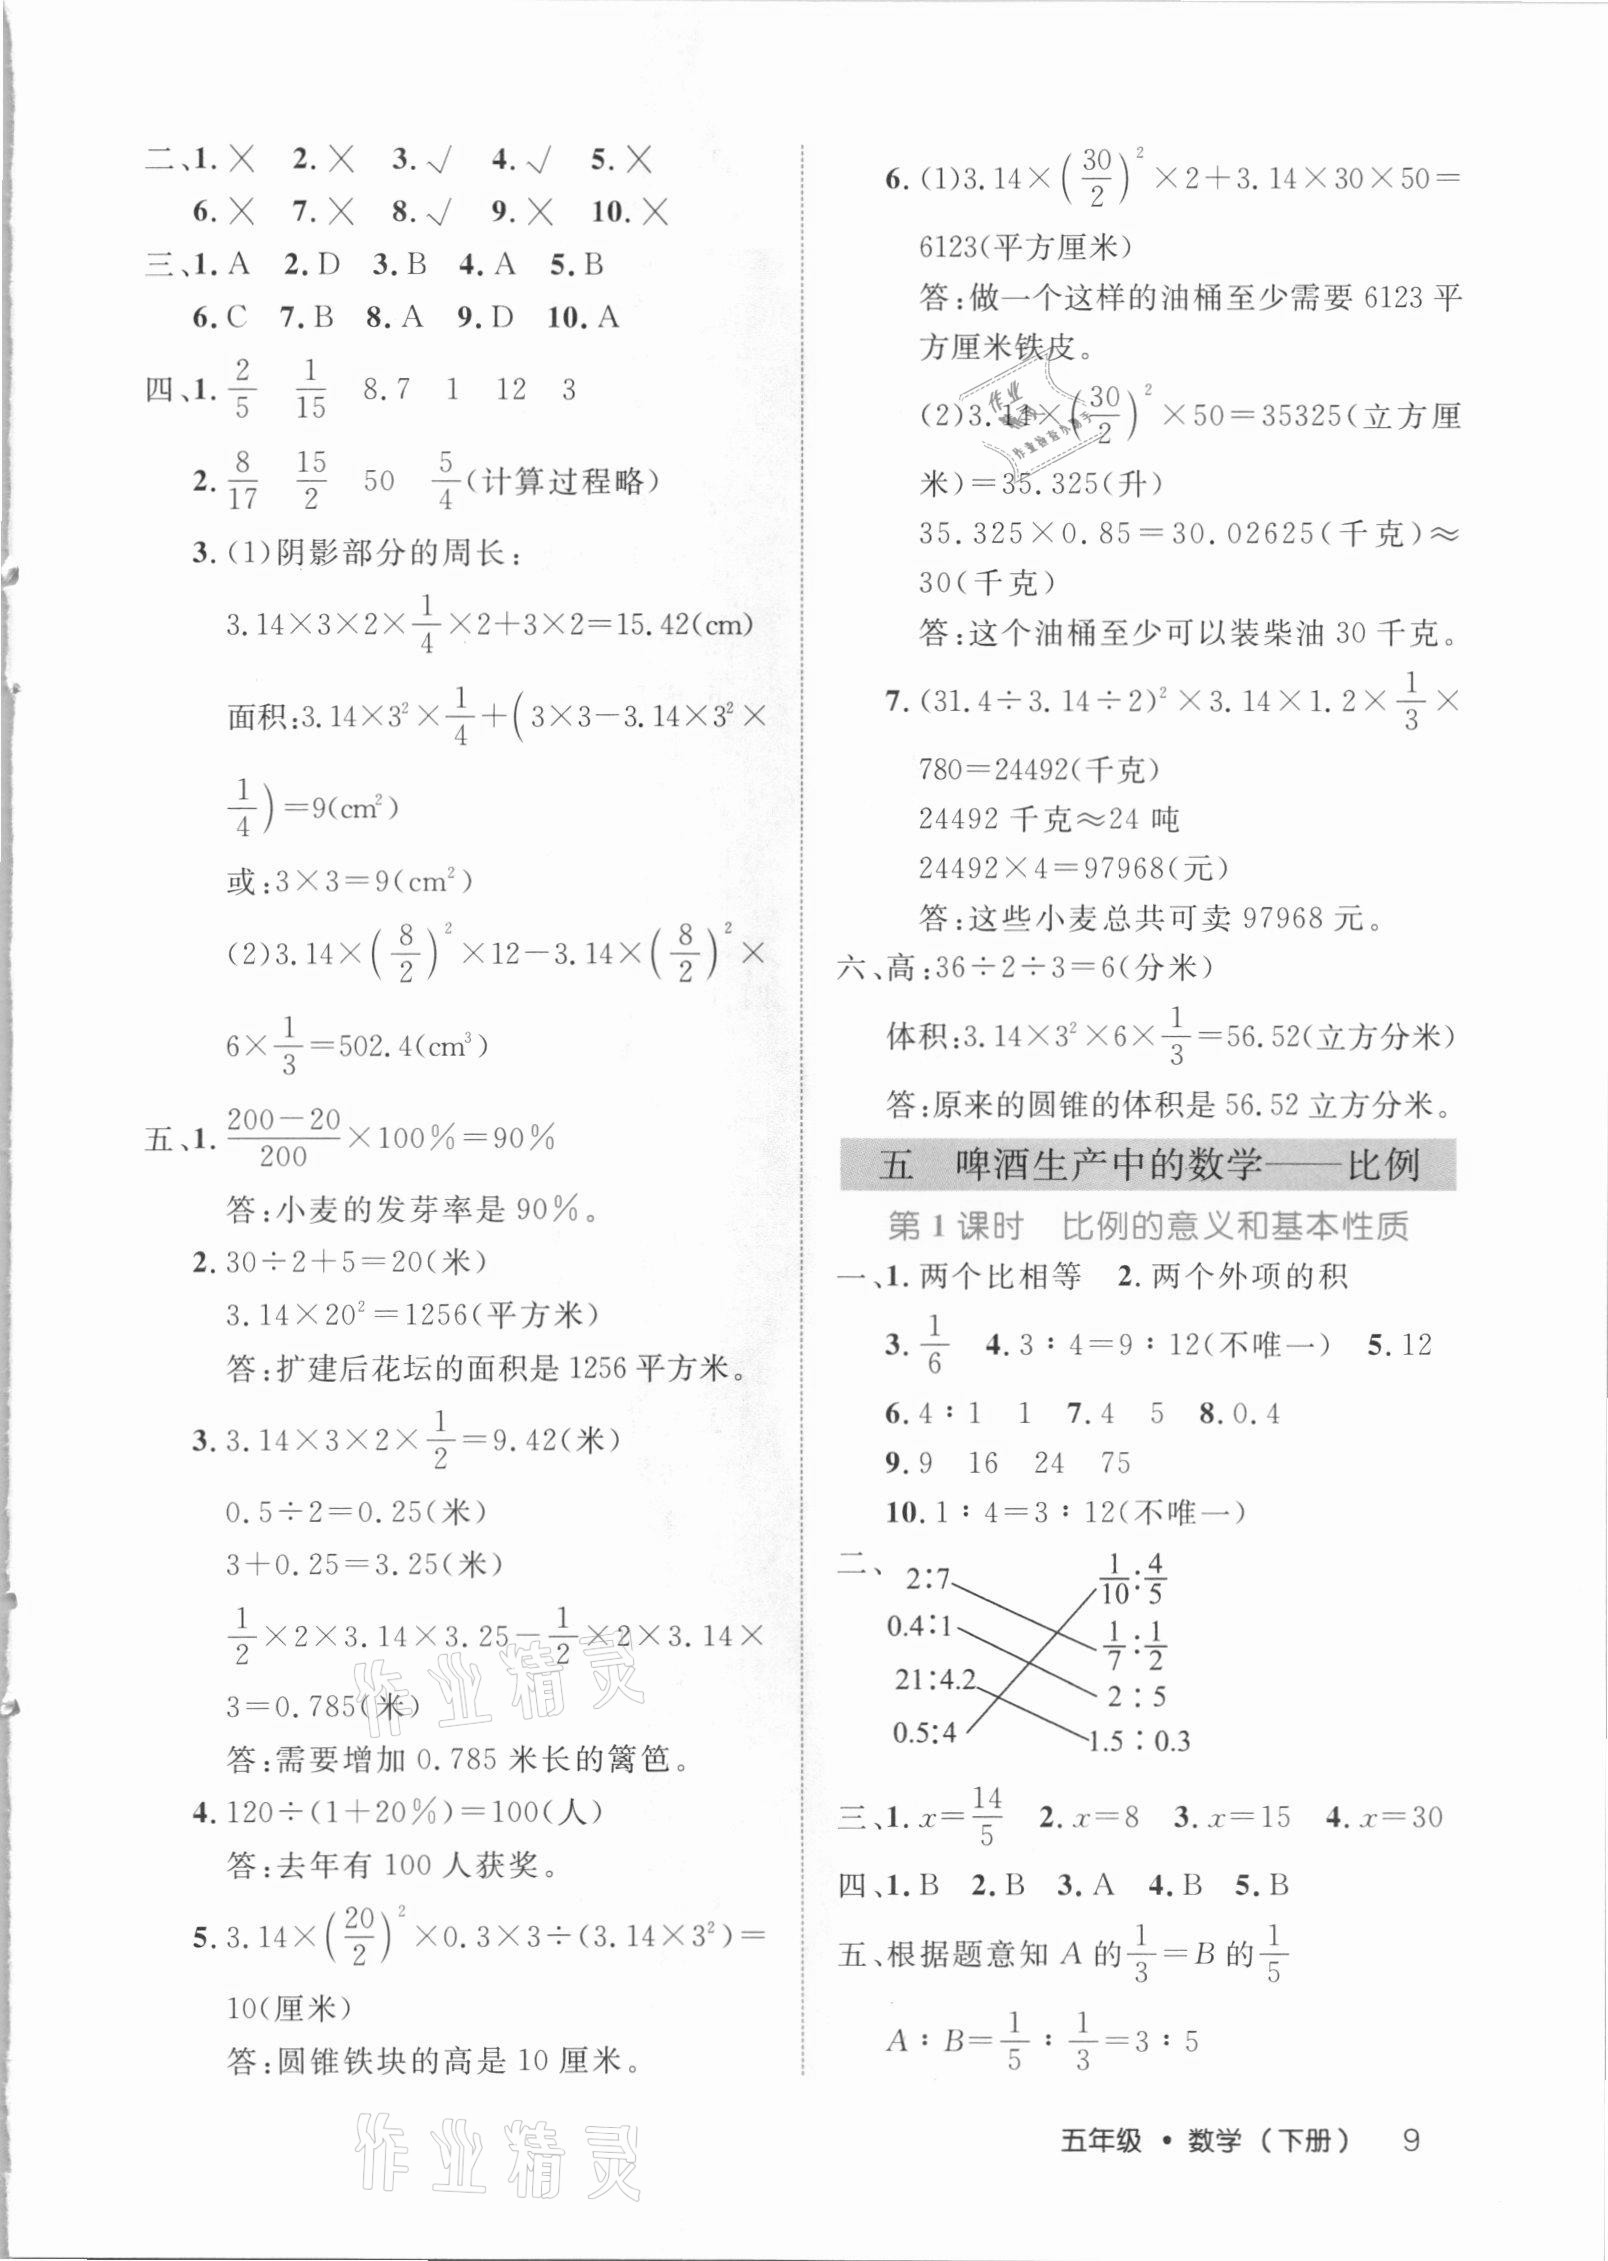 二、1. × 2. × 3. √ 4. √ 5. ×
6. × 7. × 8. √ 9. × 10. ×
三、1. A 2. D 3. B 4. A 5. B
6. C 7. B 8. A 9. D 10. A
四、1. 2/5 1/15 8.7 1 12 3
2. 8/17 15/2 50 5/4(计算过程略)
3. (1)阴影部分的周长:
3.14×3×2×1/4×2+3×2=15.42(cm)
面积:3.14×3²×1/4+(3×3-3.14×3²×
1/4)=9(cm²)
或:3×3=9(cm²)
(2)3.14×(8/2)²×12-3.14×(8/2)²×
6×1/3=502.4(cm³)
五、1. (200-20)/200×100%=90%
答:小麦的发芽率是90%。
2. 30÷2+5=20(米)
3.14×20²=1256(平方米)
答:扩建后花坛的面积是1256平方米。
3. 3.14×3×2×1/2=9.42(米)
0.5÷2=0.25(米)
3+0.25=3.25(米)
1/2×2×3.14×3.25-1/2×2×3.14×
3=0.785(米)
答:需要增加0.785米长的篱笆。
4. 120÷(1+20%)=100(人)
答:去年有100人获奖。
5. 3.14×(20/2)²×0.3×3÷(3.14×3²)=
10(厘米)
答:圆锥铁块的高是10厘米。
6. (1)3.14×(30/2)²×2+3.14×30×50=
6123(平方厘米)
答:做一个这样的油桶至少需要6123平
方厘米铁皮。
(2)3.14×(30/2)²×50=35325(立方厘
米)=35.325(升)
35.325×0.85=30.02625(千克)≈
30(千克)
答:这个油桶至少可以装柴油30千克。
7. (31.4÷3.14÷2)²×3.14×1.2×1/3×
780=24492(千克)
24492千克≈24吨
24492×4=97968(元)
答:这些小麦总共可卖97968元。
六、高:36÷2÷3=6(分米)
体积:3.14×3²×6×1/3=56.52(立方分米)
答:原来的圆锥的体积是56.52立方分米。
五 啤酒生产中的数学——比例
第1课时 比例的意义和基本性质
一、1. 两个比相等 2. 两个外项的积
3. 1/6 4. 3∶4=9∶12(不唯一) 5. 12
6. 4∶1 1 7. 4 5 8. 0.4
9. 9 16 24 75
10. 1∶4=3∶12(不唯一)
二、2∶7 1/10∶4/5
0.4∶1 1/7∶1/2
21∶4.2 2∶5
0.5∶4 1.5∶0.3
三、1. x=14/5 2. x=8 3. x=15 4. x=30
四、1. B 2. B 3. A 4. B 5. B
五、根据题意知A的1/3=B的1/5
A∶B=1/5∶1/3=3∶5
五年级·数学(下册) 9
作业精灵
作业精灵